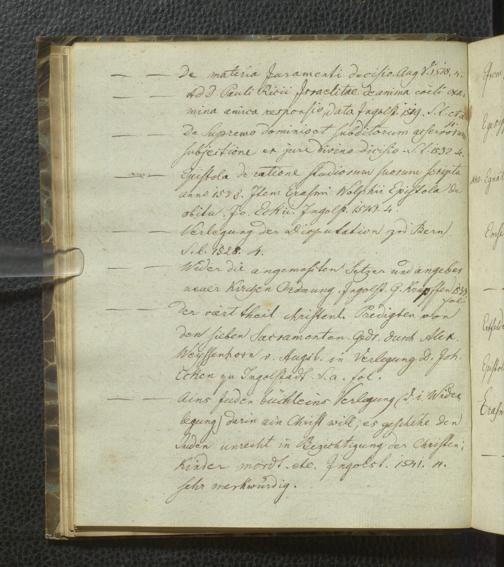 — — De materia Juramenti decisio. Aug. V. 1518. 4.
— — Ad D. Pauli Ricii Israelitae de anima coeli exa-
mina amica responsio data Ingolst. 1519. S. l. et a
— — De Supremo dominio et subditorum
subjectione, ex jure divino decisio. S. l. 1532. 4.
— — Epistola de ratione studiorum suorum scripta
anno 1538. Item Erasmi Wolphii Epistola de
obitu Jo. Eckii. Ingolst. 1543. 4.
— — Verlegung der Disputation zu Bern
S. l. 1528. 4.
— — Wider die angemaßten Setzer und angeber
neuer Kirchen Ordnung. Ingolst. G. 1533
fol.
— — Der viert theil christenl. Predigten von
den sieben Sacramenten. Gedr. durch Alex.
Weyssenhorn v. Augsb. in Verlegung D. Joh.
Ecken zu Ingolstadt. S. a. fol.
— — Ains Juden buechleins Verlegung (d. i. Wider-
legung) darin ein Christ will, es geschehe den
Juden unrecht in Bezichtigung der Christen-
kinder mordt. etc. Ingolst. 1541. 4.
sehr merkwürdig.
Item
Erasm